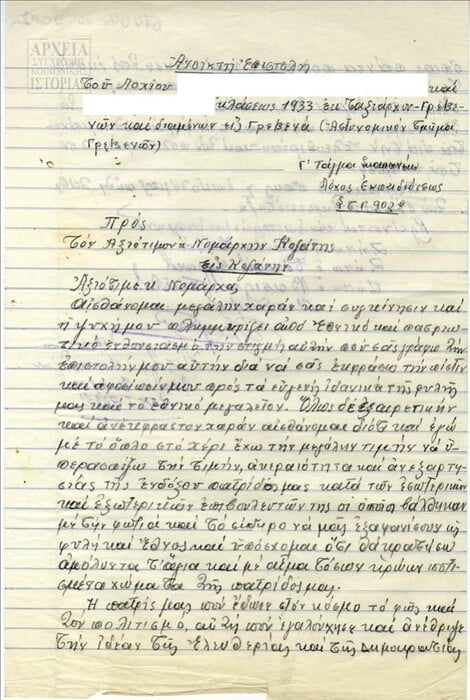 ΑΡΧΕΙΑ
ΣΥΓΧΡΟΝΗΣ
ΚΟΙΝΩΝΙΚΗΣ
ΙΣΤΟΡΙΑΣ
Ἀνοικτή Ἐπιστολή
Τοῦ Λοχίου καί
κλάσεως 1933 ἐκ Ταξιάρχου-Γρεβε-
νῶν καί διαμένων εἰς Γρεβενά (Ἀστυνομικόν Τμῆμα
Γρεβενῶν)
Γ' Τάγμα
Λόχος Ἐκπαιδεύσεως
902
Πρός
Τόν Ἀξιότιμον κ Νομάρχην Κοζάνης
εἰς Κοζάνην
Ἀξιότιμε κ Νομάρχα,
Αἰσθάνομαι μεγάλην χαράν καί συγκίνησιν καί
ἡ ψυχή μου πλημμυρίζει ἀπό ἐθνικό καί πατριω-
τικό ἐνθουσιασμό τήν στιγμή αὐτήν πού σᾶς γράφω τήν
ἐπιστολήν μου αὐτήν διά νά σᾶς ἐκφράσω τήν πίστιν
καί ἀφοσίωσίν μου πρός τά εὐγενῆ ἰδανικά τῆς φυλῆς
μας καί τό ἐθνικό μεγαλεῖον. Ὅλως δέ ἐξαιρετικήν
καί ἀνέκφραστον χαράν αἰσθάνομαι διότι καί ἐγώ
μέ τό ὅπλο στό χέρι ἔχω τήν μεγάλην τιμήν νά ὑ-
περασπίζω τήν τιμήν, ἀκεραιότητα καί ἀνεξαρτη-
σίας τῆς ἐνδόξου πατρίδος μας κατά τῶν ἐσωτερικῶν
καί ἐξωτερικῶν ἐπιβουλευτῶν της οἱ ὁποῖοι βάλθηκαν
μέ τήν φωτιά καί τό σίδερο νά μᾶς ἐξαφανίσουν ὡς
φυλή καί ἔθνος καί ὑπόσχομαι ὅτι θά κρατήσω
ἀμόλυντα τά ἅγια καί μέ αἷμα τόσων ἡρώων ποτι-
σμένα χώματα τῆς πατρίδος μας.
Ἡ πατρίς μας πού ἔδωσε στόν κόσμο τό φῶς καί
τόν πολιτισμό, αὐτή πού ἐγαλούχησε καί ἀνέθρεψε
τήν ἰδέαν τῆς Ἐλευθερίας καί τῆς Δημοκρατίας